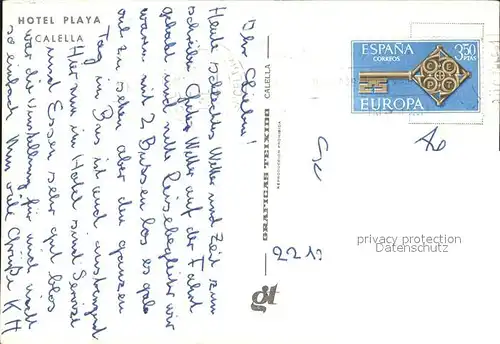 HOTEL PLAYA
CALELLA
Ihr Lieben!
Heute schlechtes Wetter und Zeit zum
schreiben. Gutes Wetter auf der Fahrt
gehabt und nette Reisebegleiter wir
waren mit 2 Bussen los es gab
viel zu sehen aber den ganzen
Tag im Bus ist auch anstrengend
Hier nun im Hotel sind Service
und Essen sehr gut blos
war die Umstellung für mich nicht
so einfach. Nun viele Grüße KH
GRAFICAS TEIXIDO CALELLA
gt
ESPAÑA
CORREOS
3,50
PTAS
EUROPA
2213
privacy protection
Datenschutz